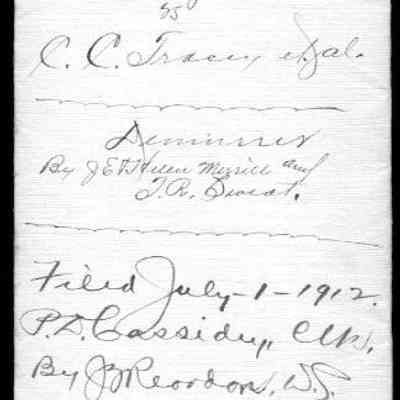 vs
C. C. Tracy, et al.
Demurrer
By J E & Helen Merrill and
T. R. Sweat.
Filed July-1-1912.
P. D. Cassidy, Clk.
By J Reordon, D.C.